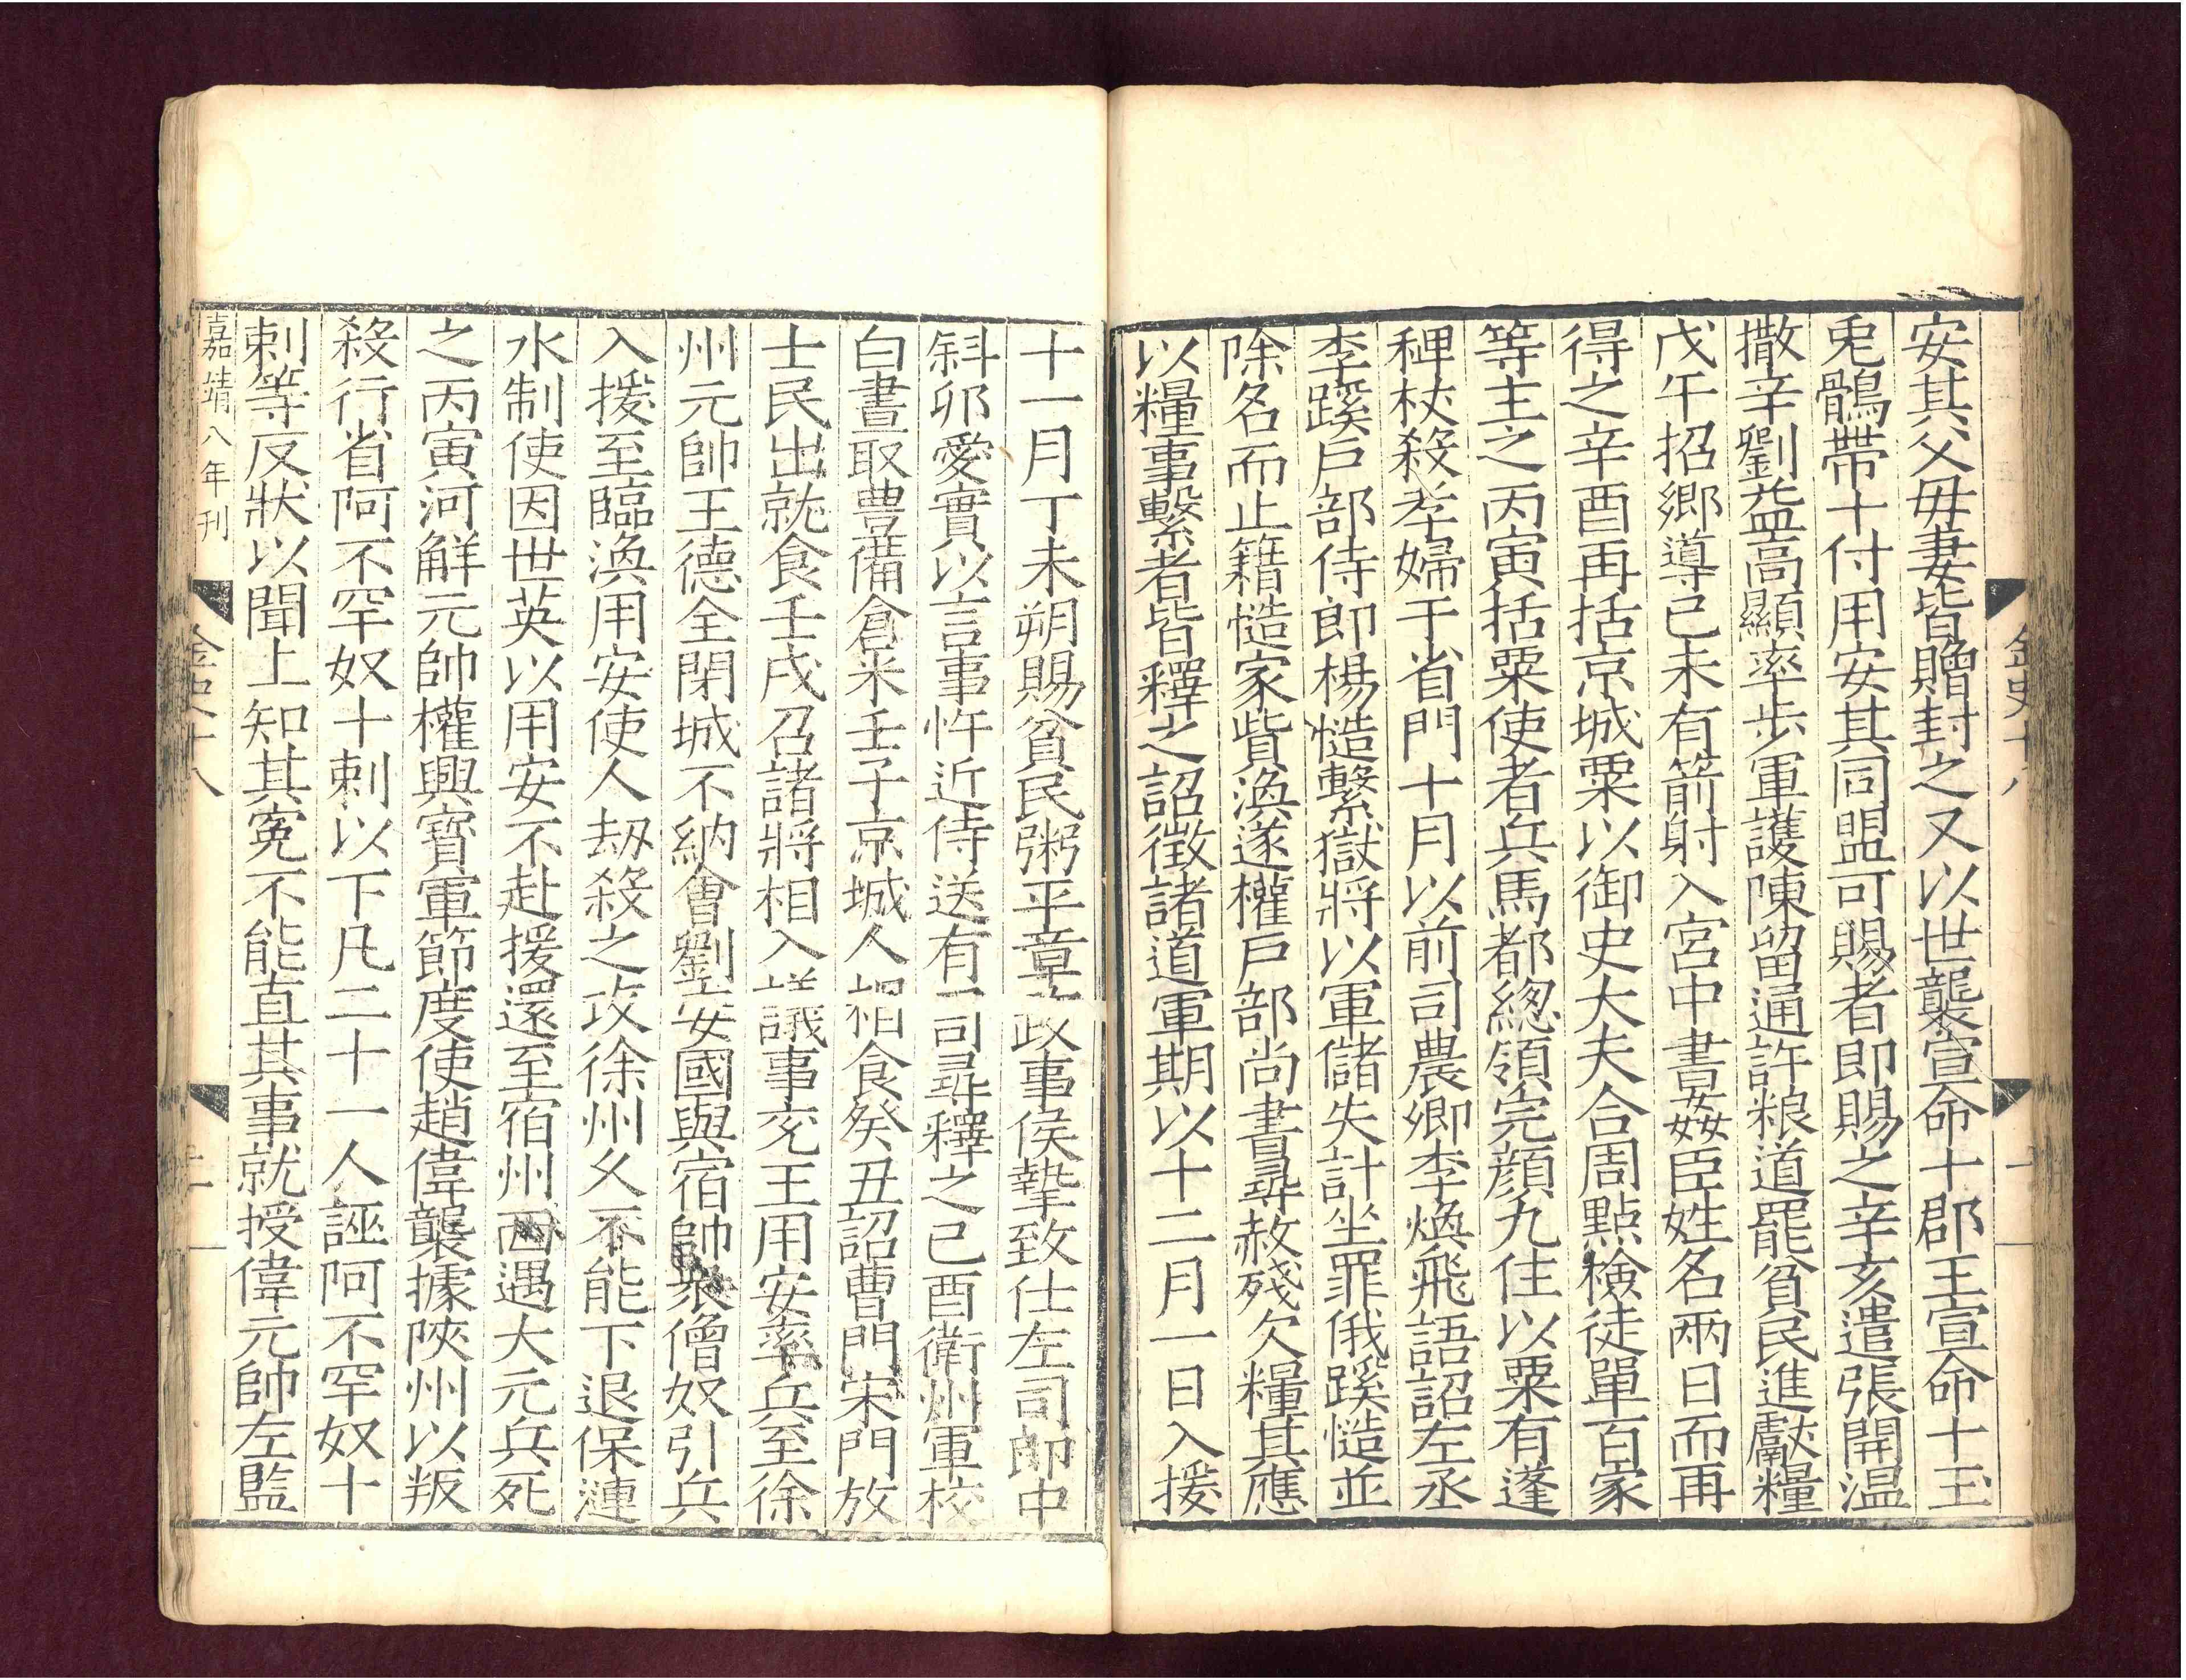 安其父母妻皆贈封之又以世襲宣命十郡王宣命十玉
兎鶻帶十付用安其同盟可賜者即賜之辛亥遣張開溫
撒辛劉益高顯率步軍護陳留通許粮道罷貧民進獻糧
戊午招鄉導己未有箭射入宮中書姦臣姓名兩日而再
得之辛酉再括京城粟以御史大夫合周點檢徒單百家
等主之丙寅括粟使者兵馬都緫領完顔九住以粟有蓬
稗杖殺孝婦于省門十月以前司農卿李煥飛語詔左丞
李蹊戶部侍郎楊慥繫獄將以軍儲失計坐罪俄蹊慥並
除名而止籍慥家貲渙遂權戶部尚書尋赦殘欠糧其應
以糧事繫者皆釋之詔徵諸道軍期以十二月一日入援
金史十八
十一月丁未朔賜貧民粥平章政事侯摯致仕左司郎中
斜卯愛實以言事忤近侍送有司尋釋之己酉衛州軍校
白晝取豊備倉米壬子京城人相食癸丑詔曹門宋門放
士民出就食壬戌召諸將相入議事兖王用安率兵至徐
州元帥王德全閉城不納會劉安國與宿帥衆僧奴引兵
入援至臨渙用安使人刼殺之攻徐州久不能下退保漣
水制使因世英以用安不赴援還至宿州西遇大元兵死
之丙寅河解元帥權興寳軍節度使趙偉襲據陝州以叛
殺行省阿不罕奴十剌以下凡二十一人誣阿不罕奴十
剌等反狀以聞上知其寃不能直其事就授偉元帥左監
嘉靖八年刊
金史十八